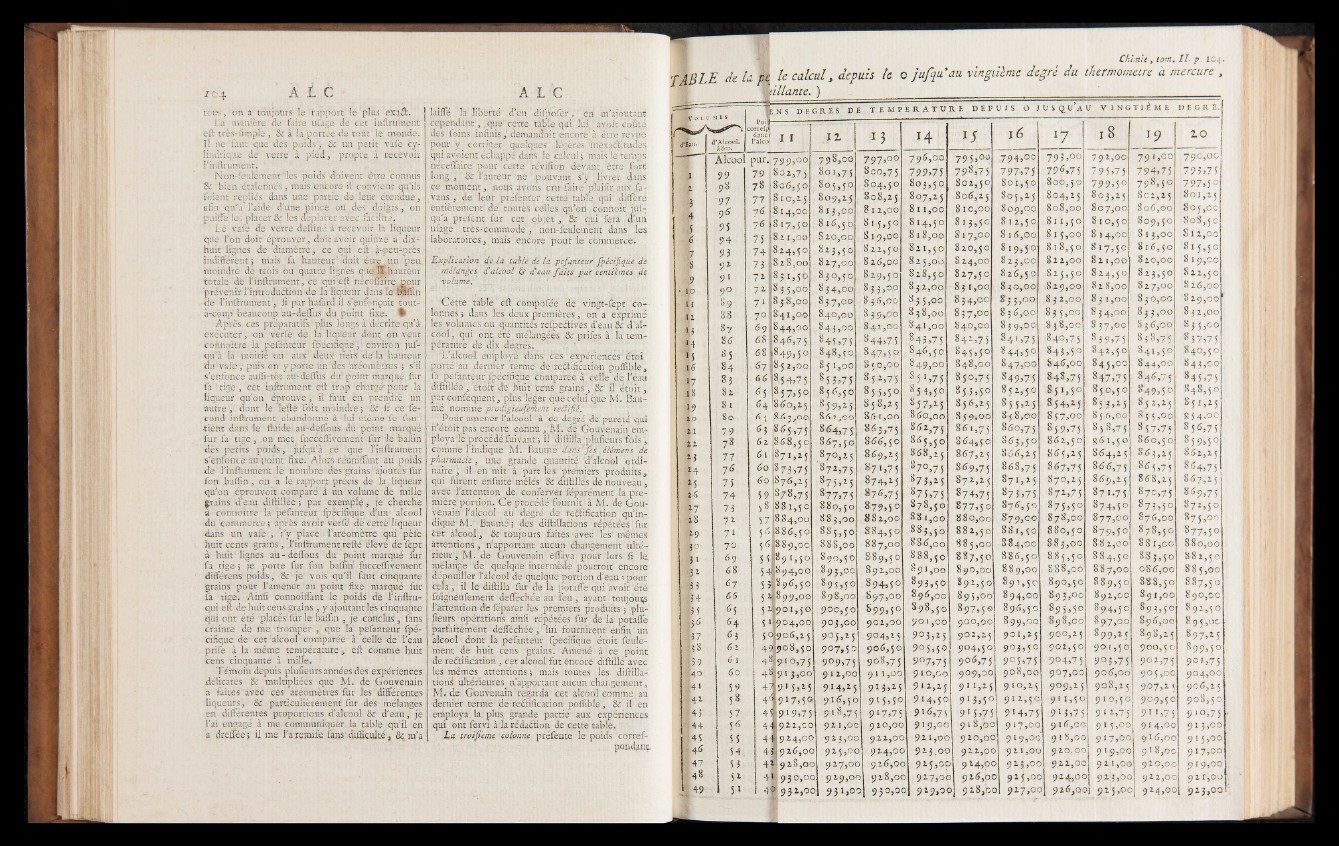 104
A L C
A L C
tous, on a toujours le rapport le plus exact.
La manière de faire usage de cet instrument
est très-simple, & à la portée de tout le monde.
Il ne faut que des poids, & un petit vase cy-
lindrique de verre à pied, propre à recevoir
l'instrument.
Non-seulement les poids doivent être connus
& bien étalonnés, mais encore il convient qu'ils
soient repliés dans une partie de leur étendue,
afin qu'à l'aide d'une pince ou des doigts, on
puisse les placer & les déplacer avec facilité.
Le vase de verre destiné à recevoir la liqueur
que l'on doit éprouver, doit avoir quinze à dix-
huit lignes de diamètre, ce qui est à-peu-près
indifférent; mais sa hauteur doit être un peu
moindre de trois ou quatre lignes que la hauteur
totale de l'instrument, ce qui est nécessaire pour
prévenir l'introduction de la liqueur dans le bassin
de l'instrument, si par hasard il s'enfonçoit tout-
à-coup beaucoup au-dessus du point fixe.
Après ces préparatifs plus longs à décrire qu'à
exécuter, on verse de la liqueur dont on veut
connoître la pesanteur spécifique, environ jus-
qu'à la moitié ou aux deux tiers de la hauteur
du vase, puis en y porte un des aréomètres; s'il
s'enfonce aussi-tôt au-dessus du point marqué sur
sa tige, cet instrument est trop chargé pour la
liqueur qu'on éprouve, il faut en prendre un
autre, dont le leste soit moindre; & si ce se-
cond instrument abandonné à lui même se sou-
tient dans le fluide au-dessous du point marqué
sur sa tige, on met successivement sur le bassin
des petits poids, jusqu'à ce que l'instrument
s'enfonce au point fixe. Alors réunissant au poids
de l'instrument le nombre des grains ajoutés sur
son bassin, on a le rapport précis de la liqueur
qu'on éprouvoit comparé à un volume de mille
grains d'eau distillée; par exemple, je cherche
à connoître la pesanteur spécifique d'un alcool
du commerce; après avoir versé de cette liqueur
dans un vase, j'y place l'aréomètre qui pèse
huit cents grains, l'instrument reste élevé de sept
à huit lignes au-dessous du point marqué sur
sa tige; je porte sur son bassin successivement
différens poids, & je vois qu'il faut cinquante
grains pour l'amener au point fixe marqué sur
sa tige. Ainsi connoissant le poids de l'instru-
qui est de huit cens grains, y ajoutant les cinquante
qui ont été placés sur le bassin, je conclus, sans
crainte de me tromper, que la pesanteur spé-
cifique de cet alcool comparée à celle de l'eau
prise à la même température, est comme huit
cens cinquante à mille.
Témoin depuis plusieurs années des expériences
délicates & multipliées que M. de Gouvenain
a faites avec ces aréomètres sur les différentes
liqueurs, & particulièrement sur des mélanges
en différentes proportions d'alcool & d'eau, je
l'ai engagé à me communiquer la table qu'il en
a dressée; il me l'a remise sans difficulté, & m'a
laissé la liberté d'en disposer, en m'ajoutant
cependant, que cette table qui lui avoit coûté
des soins infinis, demandoit encore à être revue
pour y corriger quelques légères inexactitudes
qui avoient échappé dans le calcul; mais le temps
nécessaire pour cette révision devant être fort
long, & l'auteur ne pouvant s'y livrer dans
ce moment, nous avons cru faire plaisir aux sa-
vans, de leur présenter cette table qui diffère
entièrement de toutes celles qu'on connoît jus-
qu'à présent sur cet objet, & qui sera d'un
usage très-commode, non-seulement dans les
laboratoires, mais encore pour le commerce.
Explication de la table de la pesanteur spécifique de
mélanges d'alcool & d'eau faits par centièmes de
volume.
Cette table est composée de vingt-sept co-
lonnes; dans les deux premières, on a exprimé
les volumes ou quantités respectives d'eau & d'al-
cool, qui ont été mélangées & prises à la tem-
pérature de dix degrés.
L'alcool employé dans ces expériences étoi
porté au dernier terme de rectification possible,
sa pesanteur spécifique comparée à celle de l'eau
distillée, étoit de huit cens grains, & il étoit,
par conséquent, plus léger que celui que M. Bau-
mé nomme prodigieusement rectifié.
Pour amener l'alcool à ce degré de pureté qui
n'étoit pas encore connu, M. de Gouvenain em-
ploya le procédé suivant; il distilla plusieurs fois,
comme l'indique M. Baumé dans ses élémens de
pharmacie, une grande quantité d'alcool ordi-
naire, il en mit à part les premiers produits,
qui furent ensuite mêlés & distilés de nouveau,
avec l'attention de conserver séparément la pre-
mière portion. Ce procédé fournit à M. de Gou-
venain l'alcool au degré de rectification qu'in-
dique M. Baumé; des distillations répétées sur
cet alcool, & toujours faites avec les mêmes
attentions, n'apportant aucun changement ulté-
rieur, M. de Gouvenain essaya pour lors si le
mélange de quelque intermède pourroit encore
dépouiller l'alcool de quelque portion d'eau: pour
cela, il le distilla sur de la potasse qui avoit été
soigneusement desséchée au feu, ayant toujours
l'attention de séparer les premiers produits; plu-
sieurs opérations ainsi répétées sur de la potasse
parfaitement desséchée, lui fournirent enfin un
alcool dont la pesanteur spécifique étoit seule-
ment de huit cens grains. Amené à ce point
de rectification, cet alcool fut encore distillé avec
les mêmes attentions; mais toutes les distilla-
tions ultérieures n'apportant aucun changement,
M. de Gouvenain regarda cet alcool comme au
dernier terme de rectification possible, & il en
employa la plus grande partie aux expériences
qui ont servi à la rédaction de cette table.
La troisième colonne présente le poids corres-
pondant
Chimie, tom. II. p. 104.
TABLE de la pe le calcul, depuis le 0 jusqu'au vingtième degré du thermomètre à mercure,
illante. )
VOLUMES
ENS DEGRES DE TEMPERATURE DEPUIS 0 JUSQU'AU VINGTIÈME DEGRE.
d'Eau. d'Alcool. 11 12 13 14 15 16 17 18 19 20
Alcool pur. 799,00 798,00 797,00 796,00 795,00 794,00 793,00 792,00 791,00 790,00
1 99 79 802,75 801,75 800,75 799,75 798,75 797,75 796,75 795,75 794,75 793,75
2 98 78 806,50 805,50 804,50 803,50 802,50 801,50 800,50 799,50 798,50 797,50
3 97 77 810,25 809,25 808,25 807,25 806,25 805,25 804,25 803,25 802,25 801,25
4 96 76 814,00 813,00 812,00 811,00 810,00 809,00 808,00 807,00 806,00 805,00
5 95 76 817,50 816,50 815,50 814,50 813,50 812,50 811,50 810,50 809,50 808,50
6 94 75 821,00 820,00 819,00 818,00 817,00 816,00 815,00 814,00 813,00 812,00
7 93 74 824,50 823,50 822,50 821,50 820,50 819,50 818,50 817,50 816,50 815,50
8 92 73 828,00 827,00 826,00 825,00 824,00 823,00 822,00 821,00 820,00 819,00
9 91 72 831,50 830,50 829,50 828,50 827,50 826,50 825,50 824,50 823,50 822,50
10 90 72 835,00 834,00 833,00 832,00 831,00 830,00 829,00 828,00 827,00 826,00
11 89 71 838,00 837,00 836,00 835,00 834,00 833,00 832,00 831,00 830,00 829,00
12 88 70 841,00 840,00 839,00 838,00 837,00 836,00 835,00 834,00 833,00 832,00
13 87 69 844,00 843,00 842,00 841,00 840,00 839,00 838,00 837,00 836,00 835,00
14 86 68 846,75 845,75 844,75 843,75 842,75 841,75 840,75 839,75 838,75 837,75
15 85 68 849,50 848,50 847,50 846,50 845,50 844,50 843,50 842,50 841,50 840,50
16 84 67 852,00 851,00 850,00 849,00 848,00 847,00 846,00 845,00 844,00 843,00
17 83 66 854,75 853,75 852,75 851,75 850,75 849,75 848,75 847,75 846,75 845,75
18 82 65 857,50 856,50 855,50 854,50 853,50 852,50 851,50 850,50 849,50 848,50
19 81 64 860,25 859,25 858,25 857,25 856,25 855,25 854,25 853,25 852,25 851,25
20 80 63 863,00 862,00 861,00 860,00 859,00 858,00 857,00 856,00 855,00 854,00
21 79 63 865,75 864,75 863,75 862,75 861,75 860,75 859,75 858,75 857,75 856,75
22 78 62 868,50 867,50 866,50 865,50 864,50 863,50 862,50 861,50 860,50 859,50
23 77 61 871,25 870,25 869,25 868,25 867,25 866,25 865,25 864,25 863,25 862,25
24 76 60 873,75 872,75 871,75 870,75 869,75 868,75 867,75 866,75 865,75 864,75
25 75 60 876,25 875,25 874,25 873,25 872,25 871,25 870,25 869,25 868,25 867,25
26 74 59 878,75 877,75 876,75 875,75 874,75 873,75 872,75 871,75 870,75 869,75
27 73 58 881,50 880,50 879,50 878,50 877,50 876,50 875,50 874,50 873,50 872,50
28 72 57 884,00 883,00 882,00 881,00 880,00 879,00 878,00 877,00 876,00 875,00
29 71 56 886,50 885,50 884,50 883,50 882,50 881,50 880,50 879,50 878,50 877,50
30 70 56 889,00 888,00 887,00 886,00 885,00 884,00 883,00 882,00 881,00 880,00
31 69 55 891,50 890,50 889,50 888,50 887,50 886,50 885,50 884,50 883,50 882,50
32 68 54 894,00 893,00 892,00 891,00 890,00 889,00 888,00 887,00 086,00 885,00
33 67 53 896,50 895,50 894,50 893,50 892,50 891,50 890,50 889,50 888,50 887,50
34 66 52 899,00 898,00 897,00 896,00 895,00 894,00 893,00 892,00 891,00 890,00
35 65 52 901,50 900,50 899,50 898,50 897,50 896,50 895,50 894,50 893,50 892,50
36 64 51 904,00 903,00 902,00 901,00 900,00 899,00 898,00 897,00 896,00 895,00
37 63 50 906,25 905,25 904,25 903,25 902,25 901,25 900,25 899,25 898,25 897,25
38 62 49 908,50 907,50 906,50 905,50 904,50 903,50 902,50 901,50 900,50 899,50
39 61 48 910,75 909,75 908,75 907,75 906,75 905,75 904,75 903,75 902,75 901,75
40 60 48 913,00 912,00 911,00 910,00 909,00 908,00 907,00 906,00 905,00 904,00
41 59 47 915,25 914,25 913,25 912,25 911,25 910,25 909,25 908,25 907,25 906,25
42 58 46 917,50 916,50 915,50 914,50 913,50 912,50 911,50 910,50 909,50 908,50
43 57 45 919,75 918,75 917,75 916,75 915,75 914,75 913,75 912,75 911,75 910,75
44 56 44 922,00 921,00 920,00 919,00 918,00 917,00 916,00 915,00 914,00 913,00
45 55 44 924,00 923,00 922,00 921,00 920,00 919,00 918,00 917,00 916,00 915,00
46 54 43 926,00 925,00 924,00 923,00 922,00 921,00 920,00 919,00 918,00 917,00
47 53 42 928,00 927,00 926,00 925,00 924,00 923,00 922,00 921,00 920,00 919,00
48 52 41 930,00 929,00 928,00 927,00 926,00 925,00 924,00 923,00 922,00 921,00
49 51 40 932,00 931,00 930,00 929,00 928,00 927,00 926,00 925,00 924,00 923,00